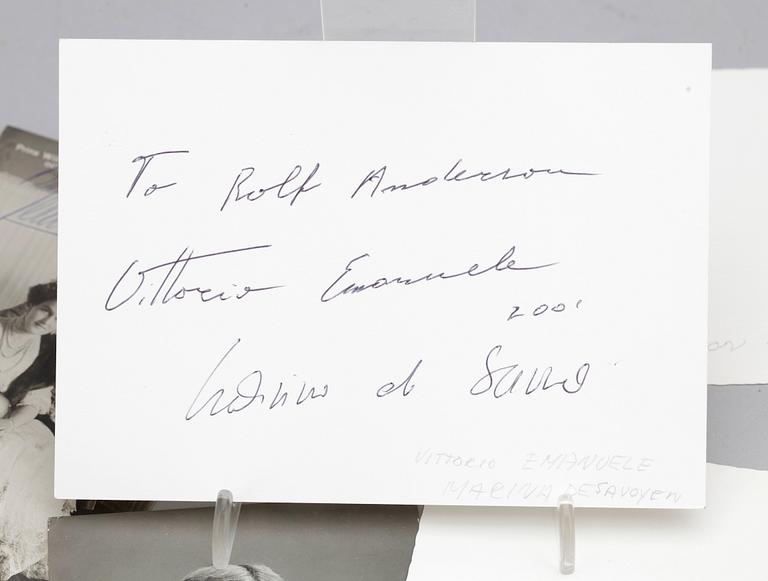 To Rolf Anderson
Vittorio Emanuele
2001
di
VITTORIO EMANUELE
MARINA DE SAVOYEN